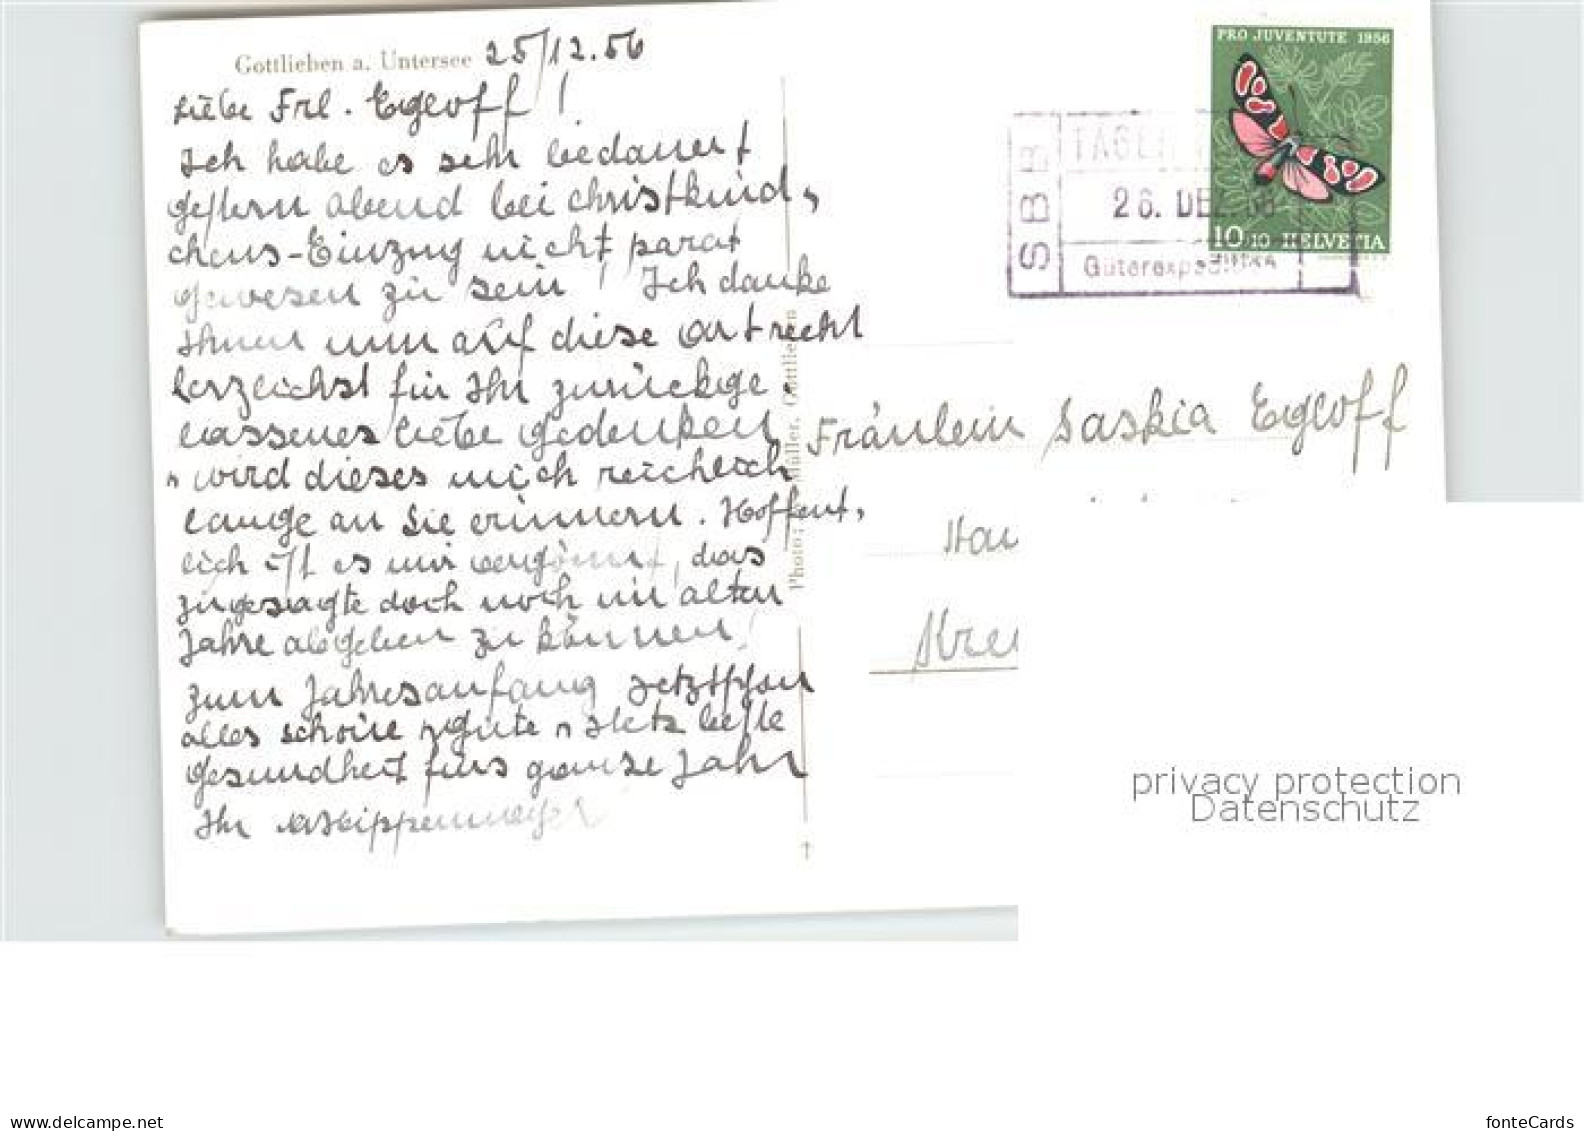 Gottlieben a. Untersee 25/12.56
Liebe Frl. Egloff!
Ich habe es sehr bedauert
gestern abend bei Christkind,
chens-Einzug nicht parat
gewesen zu sein! Ich danke
Ihnen nun auf diese Art recht
herzlichst für Ihr zurückge,
lassenes liebe Gedenken
wird dieses mich reichlich
lange an Sie erinnern. Hoffent,
lich ist es mir vergönnt, das
zugesagte doch noch im alten
Jahre abgeben zu können!
Zum Jahresanfang jetzt schon
alles schöne & Gute & stets beste
Gesundheit fürs ganze Jahr
Ihr
Photo: Müller, Gottlieben
PRO JUVENTUTE 1956
10+10 HELVETIA
SBB
26. DEZ. 56
Güterexpedition
Fräulein Saskia Egloff
Hau
Kreu
privacy protection
Datenschutz
www.delcampe.net
fonteCards